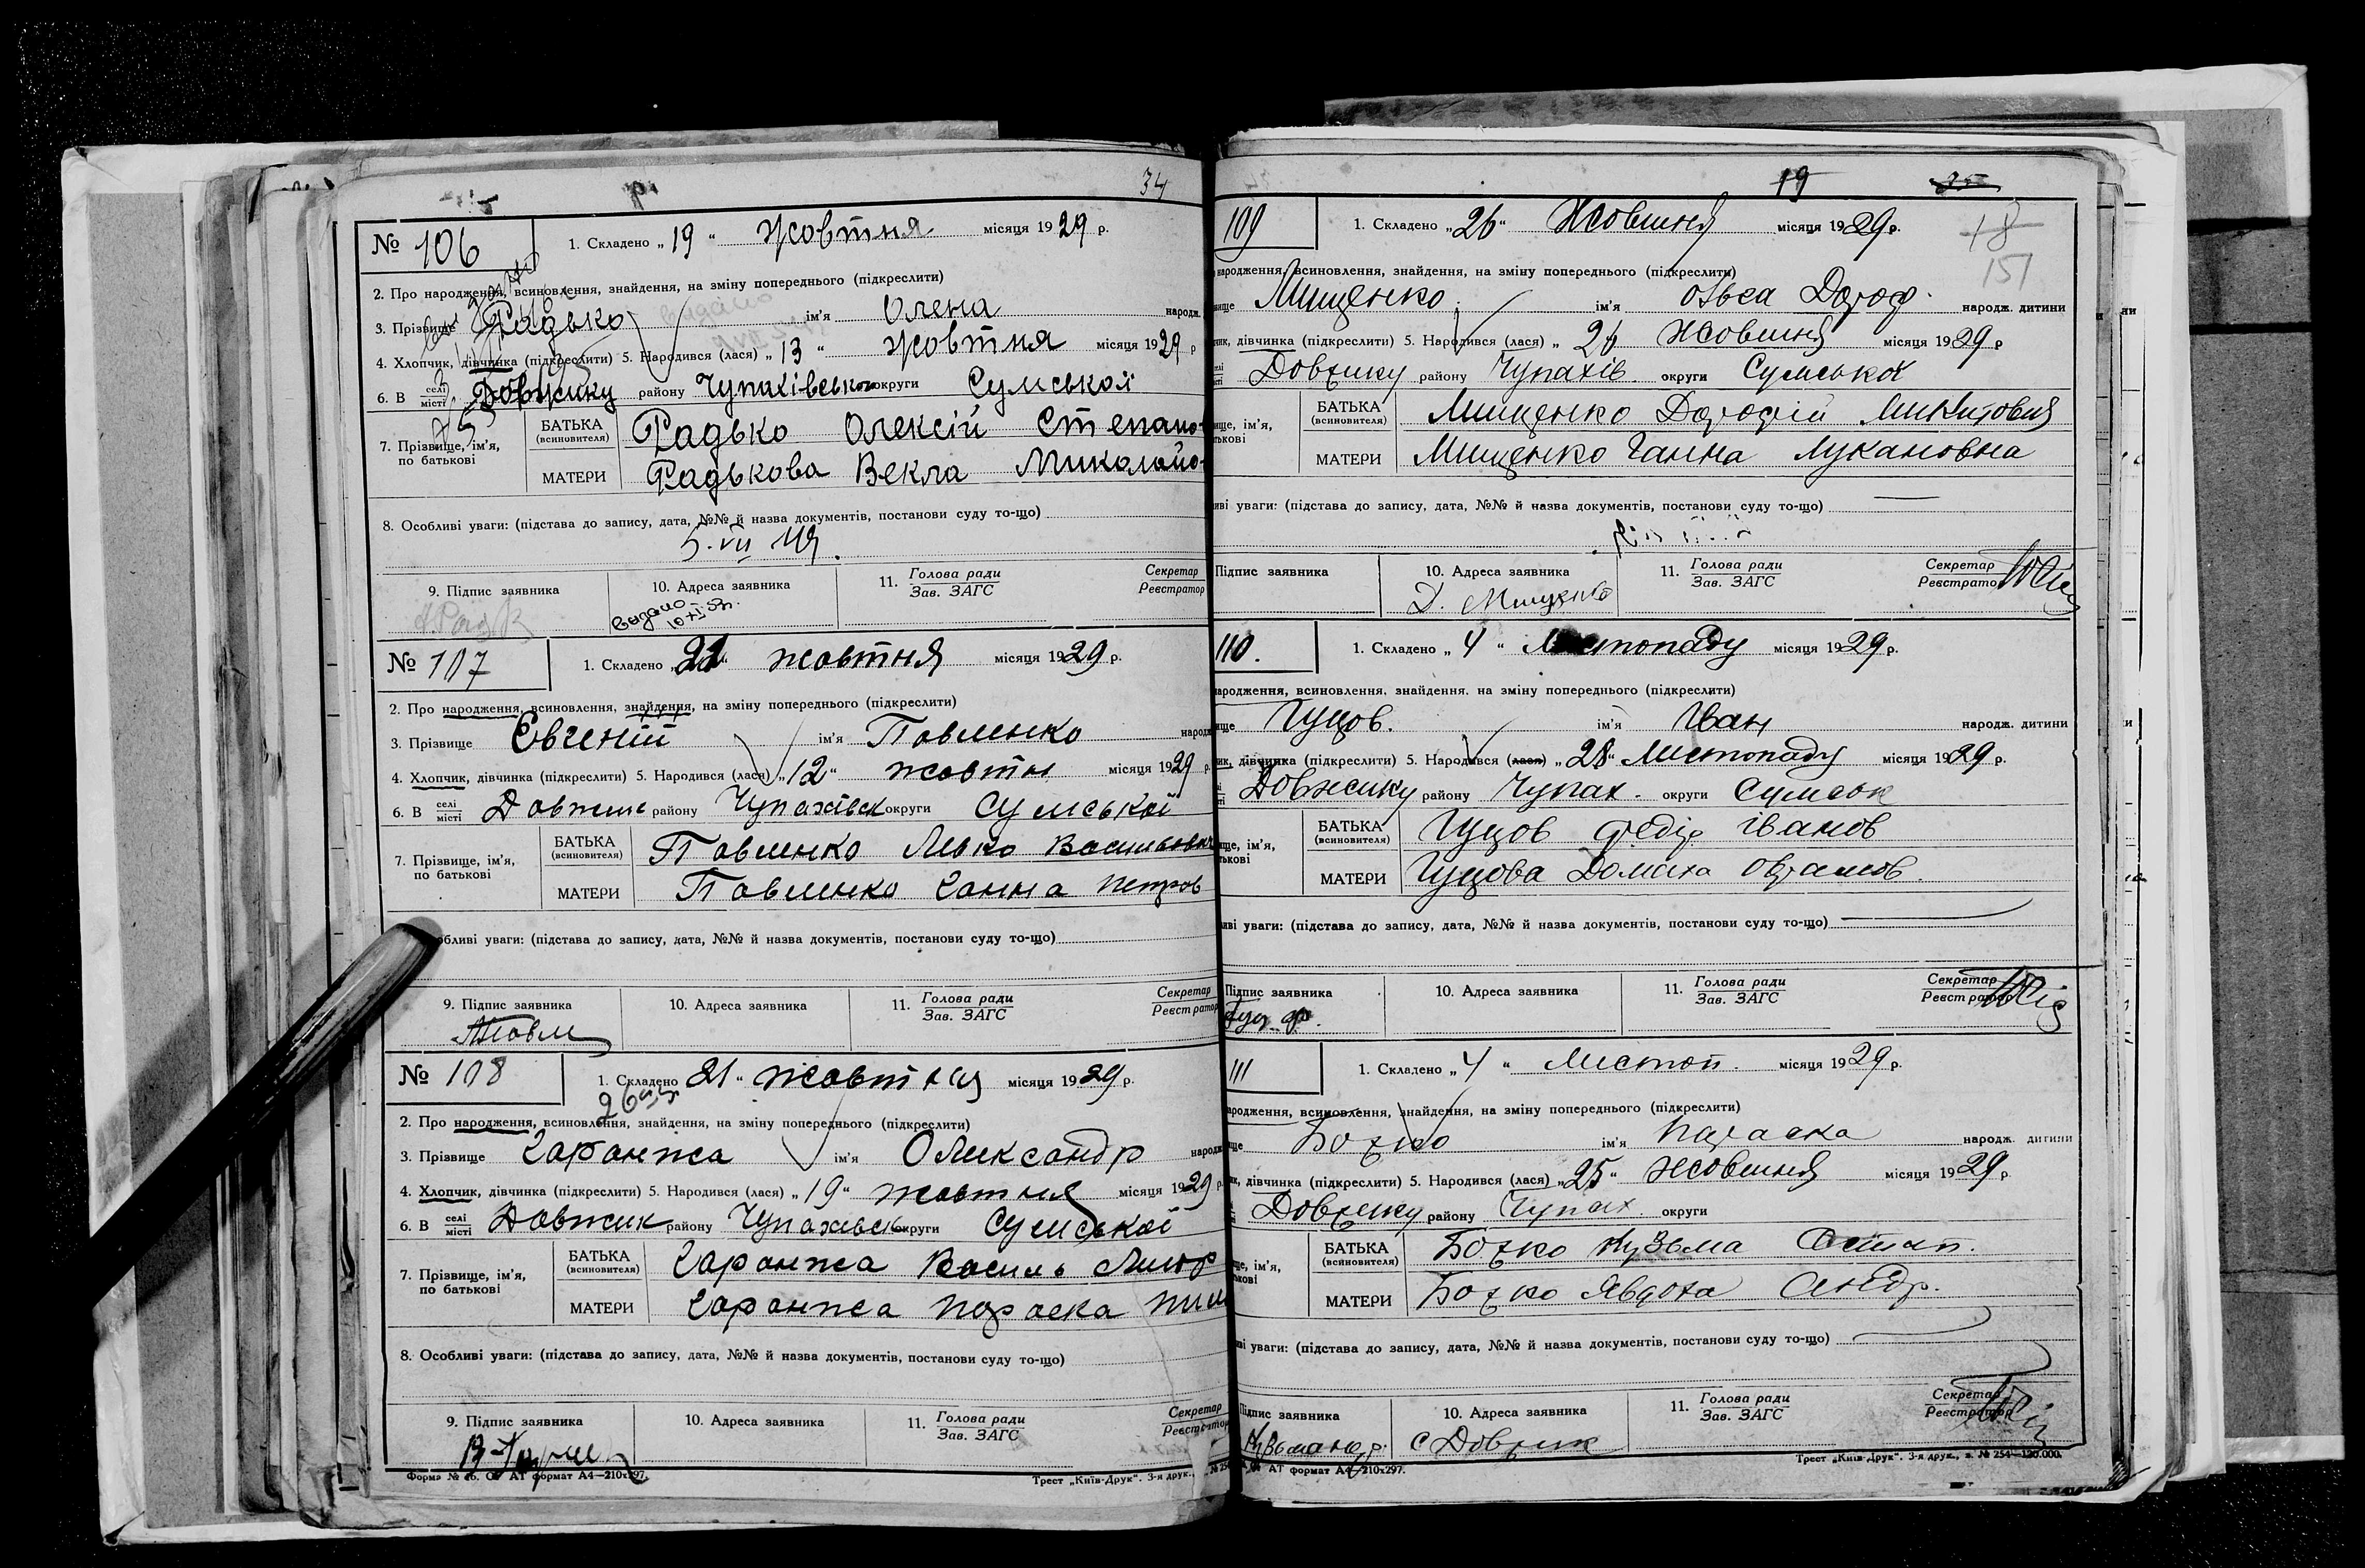 34
№ 106
1. Складено „ 19 “ жовтня місяця 1929 р.
2. Про народження, всиновлення, знайдення, на зміну попереднього (підкреслити)
3. Прізвище Радько ім'я Олена народж.
4. Хлопчик, дівчинка (підкреслити) 5. Народився (лася) „ 13 “ жовтня місяця 1929 р
6. В селі місті Довжику району Чупахівського округи Сумськой
7. Прізвище, ім'я, по батькові
БАТЬКА (всиновителя) Радько Олексій Степано-
МАТЕРИ Радькова Векла Миколайо-
8. Особливі уваги: (підстава до запису, дата, №№ й назва документів, постанови суду то-що)
5. VII 49.
9. Підпис заявника
10. Адреса заявника
11. Голова ради Зав. ЗАГС
Секретар Реєстратор
№ 107
1. Складено „ 21 “ жовтня місяця 1929 р.
2. Про народження, всиновлення, знайдення, на зміну попереднього (підкреслити)
3. Прізвище Євгеній ім'я Павленко народж
4. Хлопчик, дівчинка (підкреслити) 5. Народився (лася) „ 12 “ жовтн місяця 1929 р.
6. В селі місті Довжик району Чупахівськ округи Сумської
7. Прізвище, ім'я, по батькові
БАТЬКА (всиновителя) Павленко Левко Васильович
МАТЕРИ Павленко Ганна Петров
обливі уваги: (підстава до запису, дата, №№ й назва документів, постанови суду то-що)
9. Підпис заявника
10. Адреса заявника
11. Голова ради Зав. ЗАГС
Секретар Реєстратор
№ 108
1. Складено 21 “ жовтня місяця 1929 р.
2. Про народження, всиновлення, знайдення, на зміну попереднього (підкреслити)
3. Прізвище Гаранжа ім'я Олександр народж
4. Хлопчик, дівчинка (підкреслити) 5. Народився (лася) „ 19 “ жовтня місяця 1929 р.
6. В селі місті Довжик району Чупахівськ округи Сумської
7. Прізвище, ім'я, по батькові
БАТЬКА (всиновителя) Гаранжа Василь
МАТЕРИ Гаранжа Параска
8. Особливі уваги: (підстава до запису, дата, №№ й назва документів, постанови суду то-що)
9. Підпис заявника
10. Адреса заявника
11. Голова ради Зав. ЗАГС
Секретар Реєстратор
АТ формат А4—210х297.
Трест „Київ-Друк“. 3-я друк.,
19
18
151
109
1. Складено „ 26 “ Жовтня місяця 1929 р.
народження, всиновлення, знайдення, на зміну попереднього (підкреслити)
вище Мищенко ім'я Ольга Дороф. народж. дитини
чик, дівчинка (підкреслити) 5. Народився (лася) „ 26 Жовтня місяця 1929 р
Довжику району Чупахів. округи Сумської
БАТЬКА (всиновителя) Мищенко Дорофій Микитович
МАТЕРИ Мищенко Ганна Лукановна
иві уваги: (підстава до запису, дата, №№ й назва документів, постанови суду то-що)
Підпис заявника
10. Адреса заявника
11. Голова ради Зав. ЗАГС
Секретар Реєстратор
Д. Мищенко
110.
1. Складено „ 4 “ Листопаду місяця 1929 р.
ародження, всиновлення, знайдення, на зміну попереднього (підкреслити)
ище Гуцов. ім'я Іван народж. дитини
ик, дівчинка (підкреслити) 5. Народився (лася) „ 28 “ Листопаду місяця 1929 р.
Довжику району Чупах. округи Сумськ
БАТЬКА (всиновителя) Гуцов Федір Іванов
МАТЕРИ Гуцова Домаха Оврамов.
иві уваги: (підстава до запису, дата, №№ й назва документів, постанови суду то-що)
Підпис заявника
10. Адреса заявника
11. Голова ради Зав. ЗАГС
Секретар Реєстратор
111
1. Складено „ 4 “ Листоп. місяця 1929 р.
ародження, всиновлення, знайдення, на зміну попереднього (підкреслити)
ще Божко ім'я Параска народж. дитини
к, дівчинка (підкреслити) 5. Народився (лася) „ 25 “ Жовтня місяця 1929 р
Довжику району Чупах. округи
БАТЬКА (всиновителя) Божко Кузьма Остап.
МАТЕРИ Божко Явдоха Андр.
ві уваги: (підстава до запису, дата, №№ й назва документів, постанови суду то-що)
Підпис заявника
10. Адреса заявника
11. Голова ради Зав. ЗАГС
Секретар Реєстратор
с Довжик
АТ формат А4—210х297.
Трест „Київ-Друк“. 3-я друк., з. № 254—120.000.